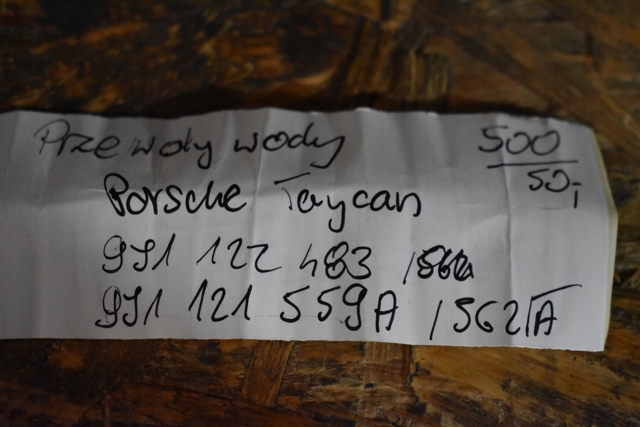 Przewody wody 500
50,-
Porsche Taycan
9J1 122 483
9J1 121 559A / 562 A